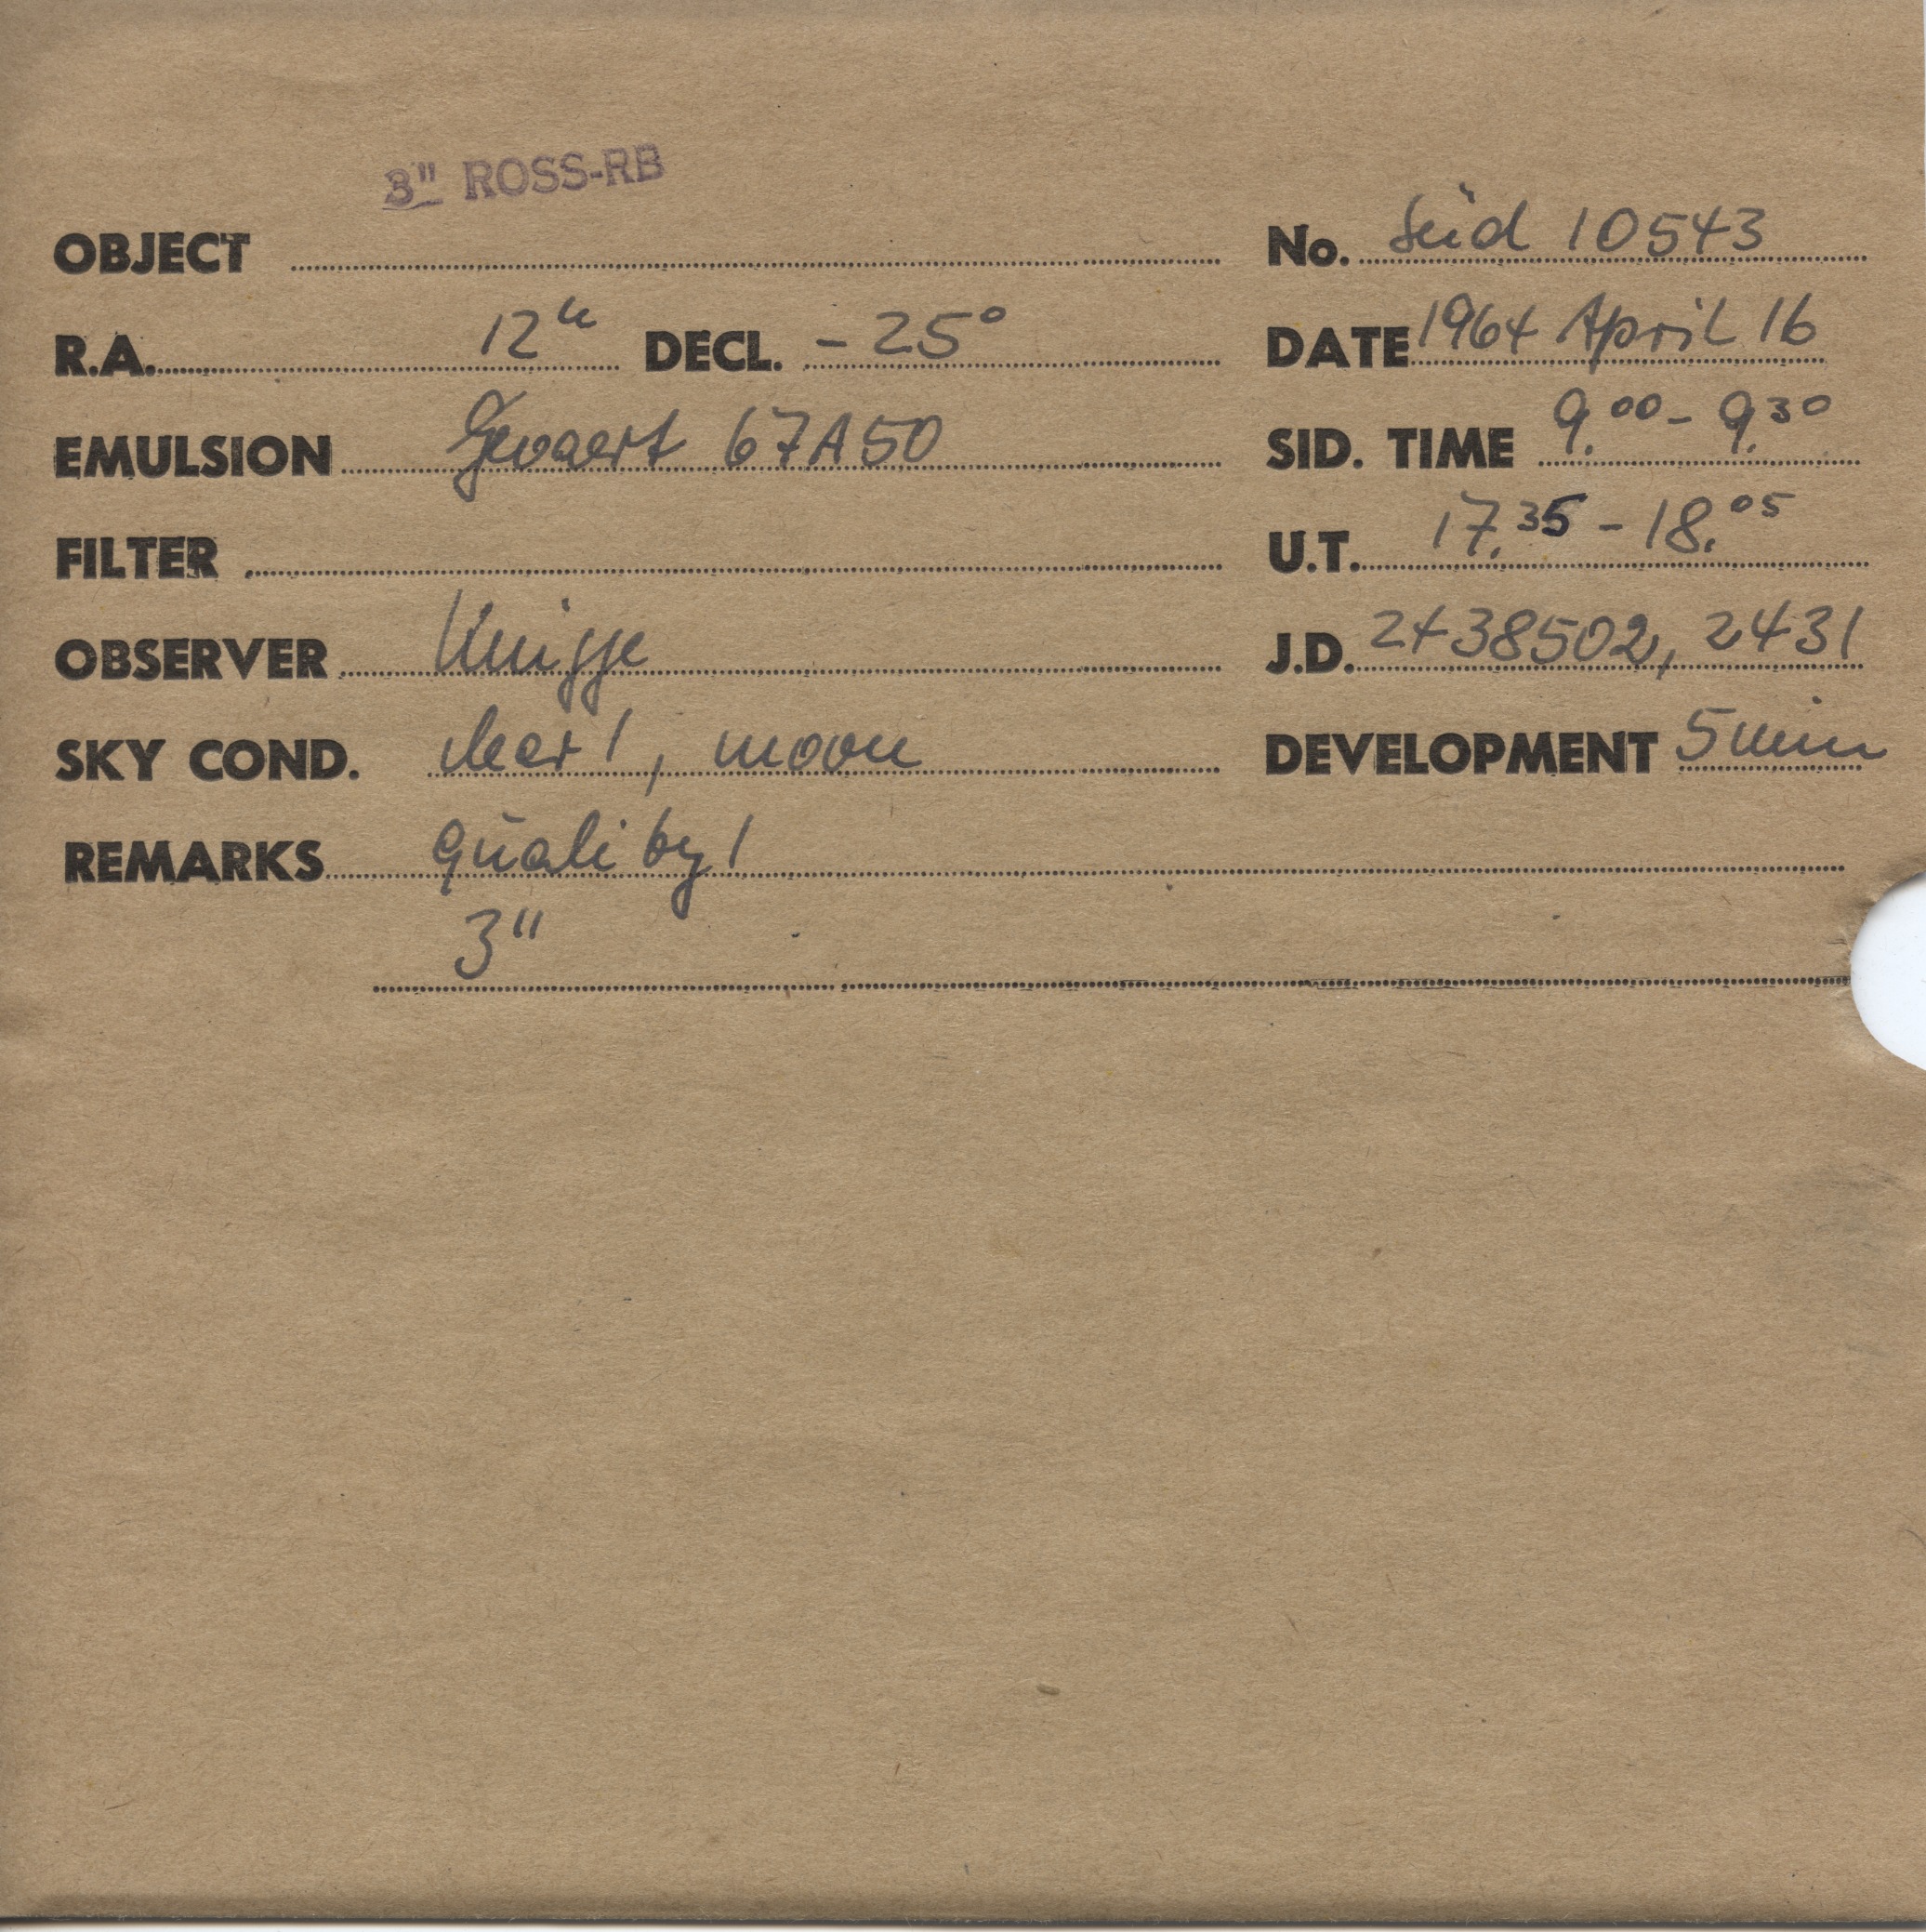 3" ROSS-RB
OBJECT No. Süd 10543
R.A. 12h DECL. - 25° DATE 1964 April 16
EMULSION Gevaert 67A50 SID. TIME 9.00 - 9.30
FILTER U.T. 17.35 - 18.05
OBSERVER Knigge J.D. 2438502, 2431
SKY COND. clear!, moon DEVELOPMENT 5 min
REMARKS quality!
3"